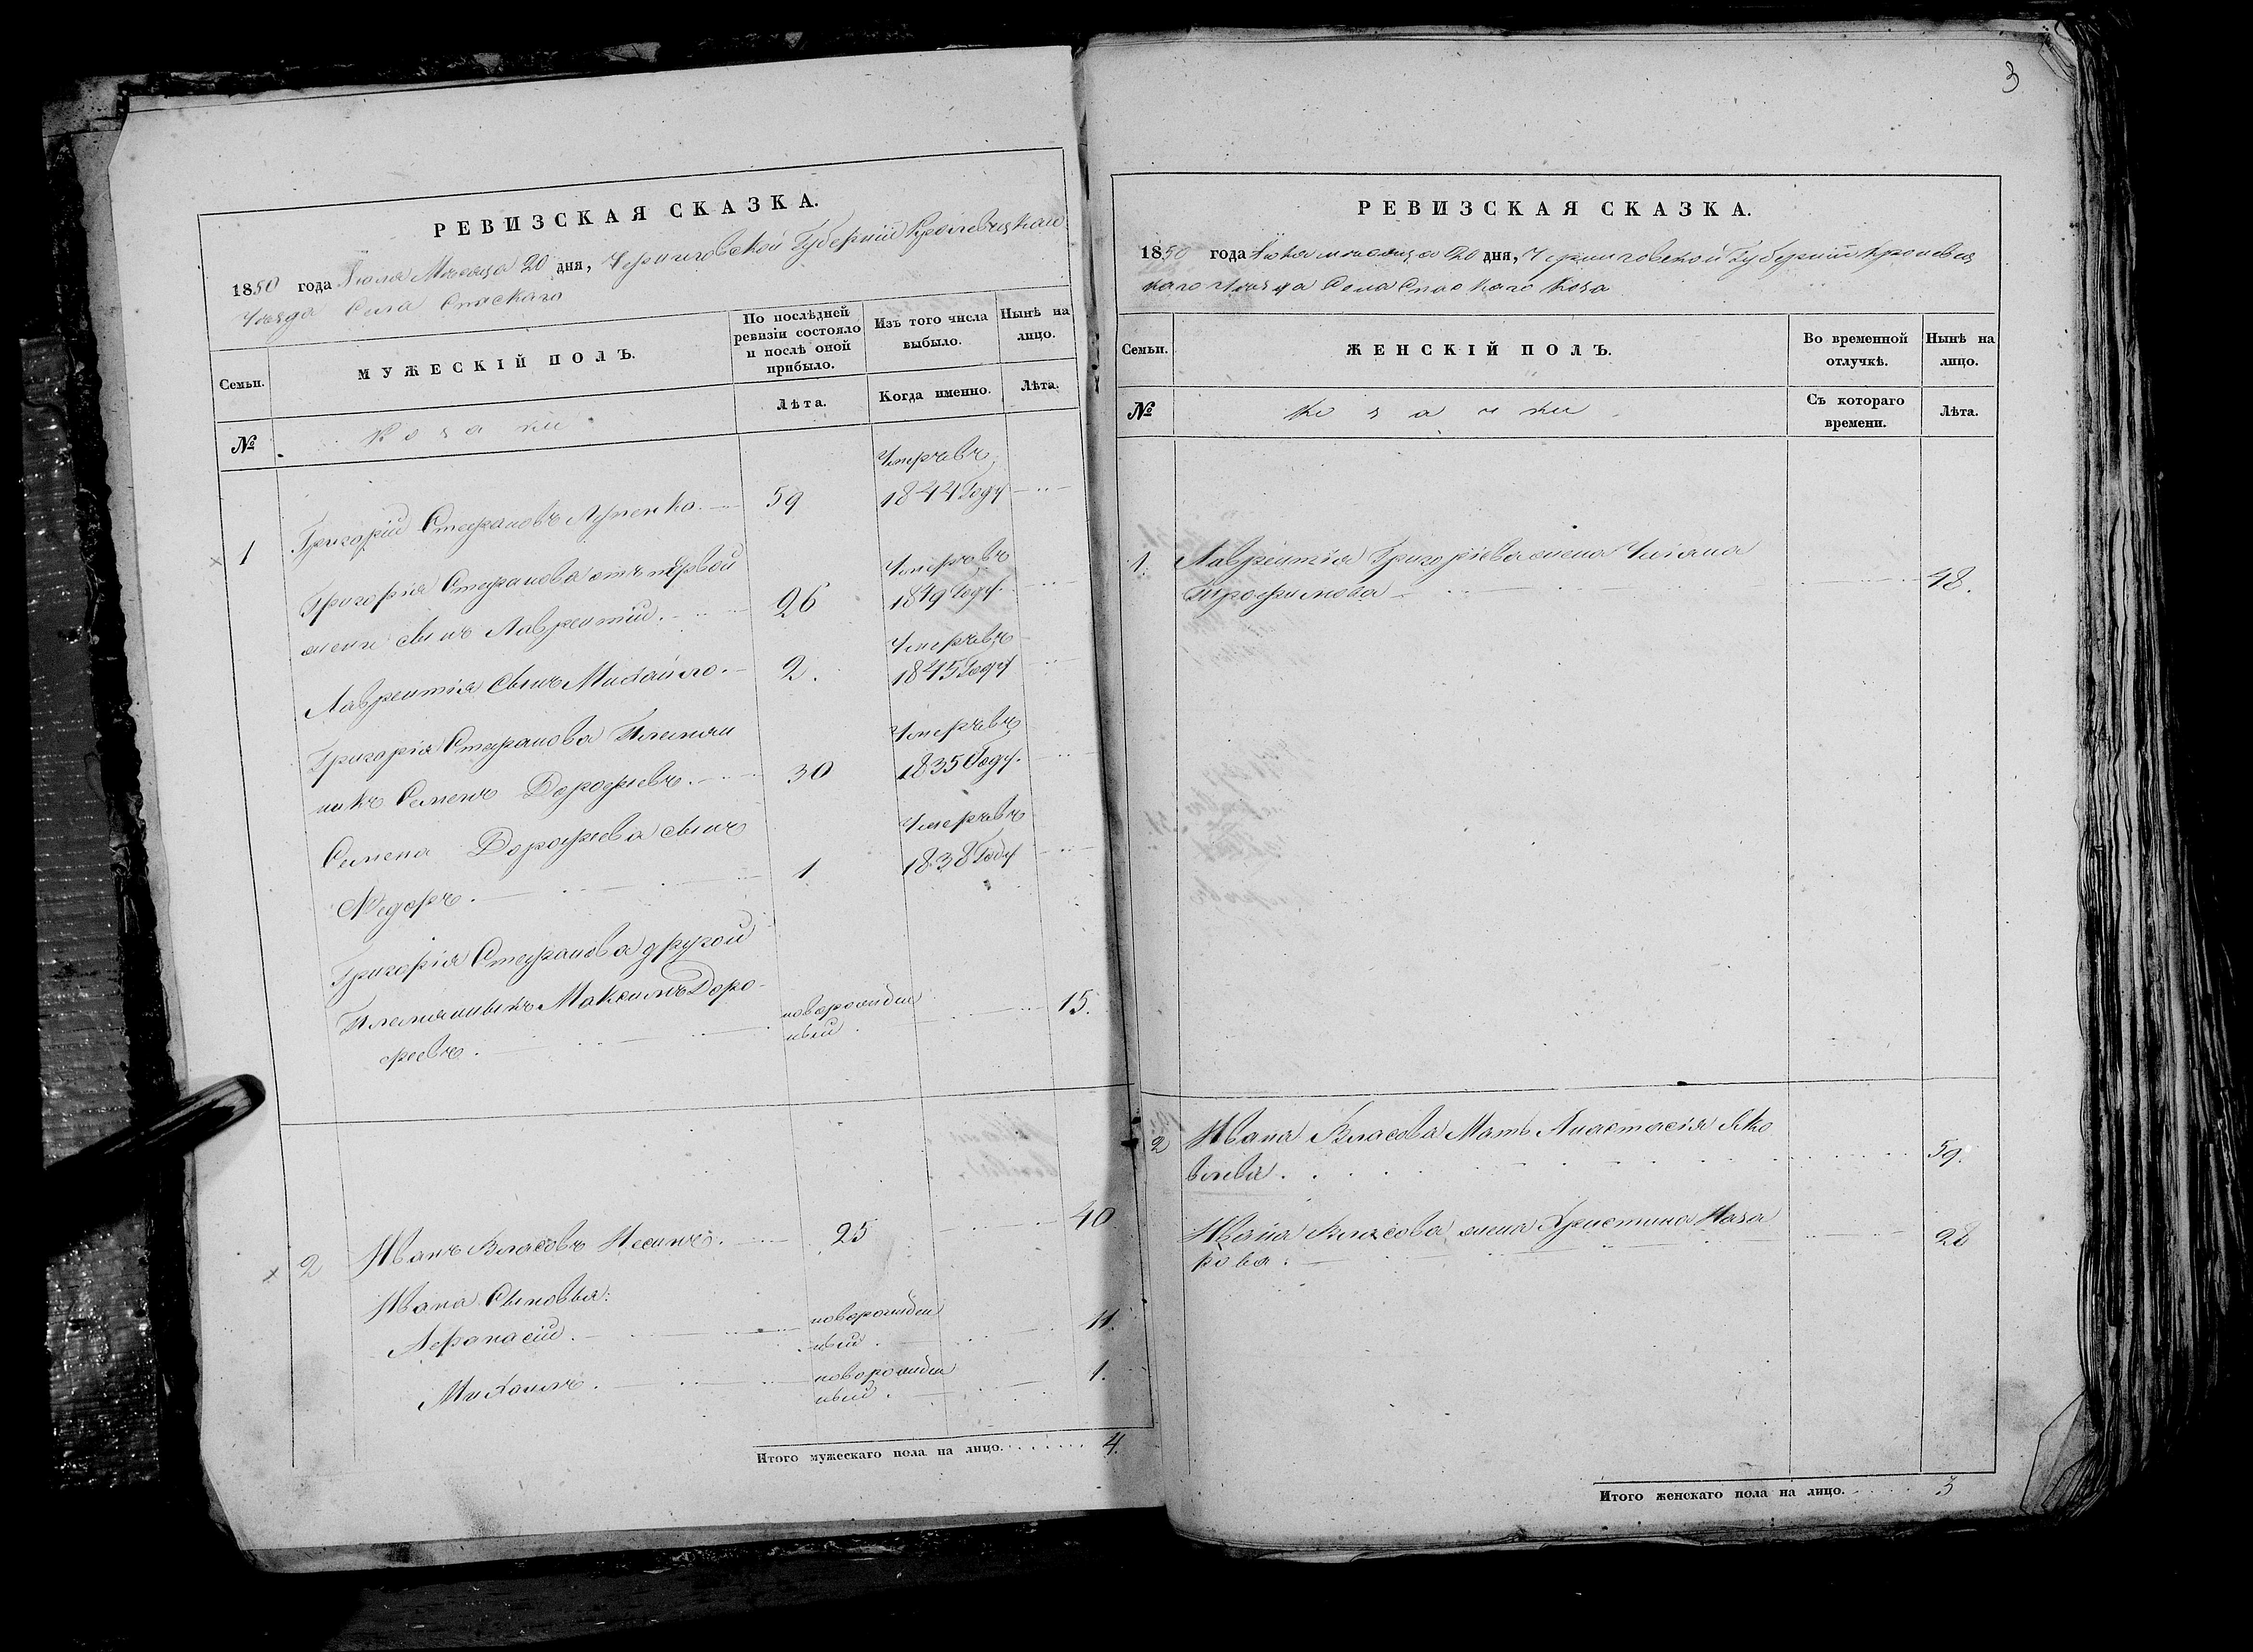 РЕВИЗСКАЯ СКАЗКА.
1850 года Іюля Месяца 20 дня, Черниговской Губерніи Кролевецкаго
Уезда Села Спаскаго
Семьи.
МУЖЕСКІЙ ПОЛЪ.
По послѣдней
ревизіи состояло
и послѣ оной
прибыло.
Изъ того числа
выбыло.
Нынѣ на
лицо.
№
Козаки
Лѣта.
Когда именно.
Лѣта.
Умеръ въ
1 Григорій Стефановъ 59 1844 Году
Григорія Стефанова отъ первой Умеръ въ
жены сынъ Лаврентій. 26 1849 Году.
Умеръ въ
Лаврентія Сынъ Михайло. 2. 1845 Году
Григорія Стефанова Племян Умеръ въ
никъ Семенъ Дорофеевъ. 30 1835 Году.
Семена Дорофеева сынъ Умеръ въ
Федоръ. 1 1838 Году
Григорія Стефанова другой
Племянникъ Максимъ Доро- новорожден 15.
феевъ. ный.
2 Иванъ Власовъ 25 40
Ивана Сыновья:
Афанасій. новорожден 11.
ный.
Михаилъ. новорожден 1.
ный.
Итого мужескаго пола на лицо. 4.
3
РЕВИЗСКАЯ СКАЗКА.
1850 года Іюля месяца 20 дня, Черниговской Губерніи Кролевец
каго Уезда Села Спаскаго
Семьи.
ЖЕНСКІЙ ПОЛЪ.
Во временной
отлучкѣ.
Нынѣ на
лицо.
№
Козачки
Съ котораго
времени.
Лѣта.
1. Лаврентія Григоріева жена Уліяна
Трофимова 48.
2 Ивана Власова Мать Анастасія Яко
влева. 59.
Ивана Власова жена Христина Наза
рова. 28
Итого женскаго пола на лицо. 3